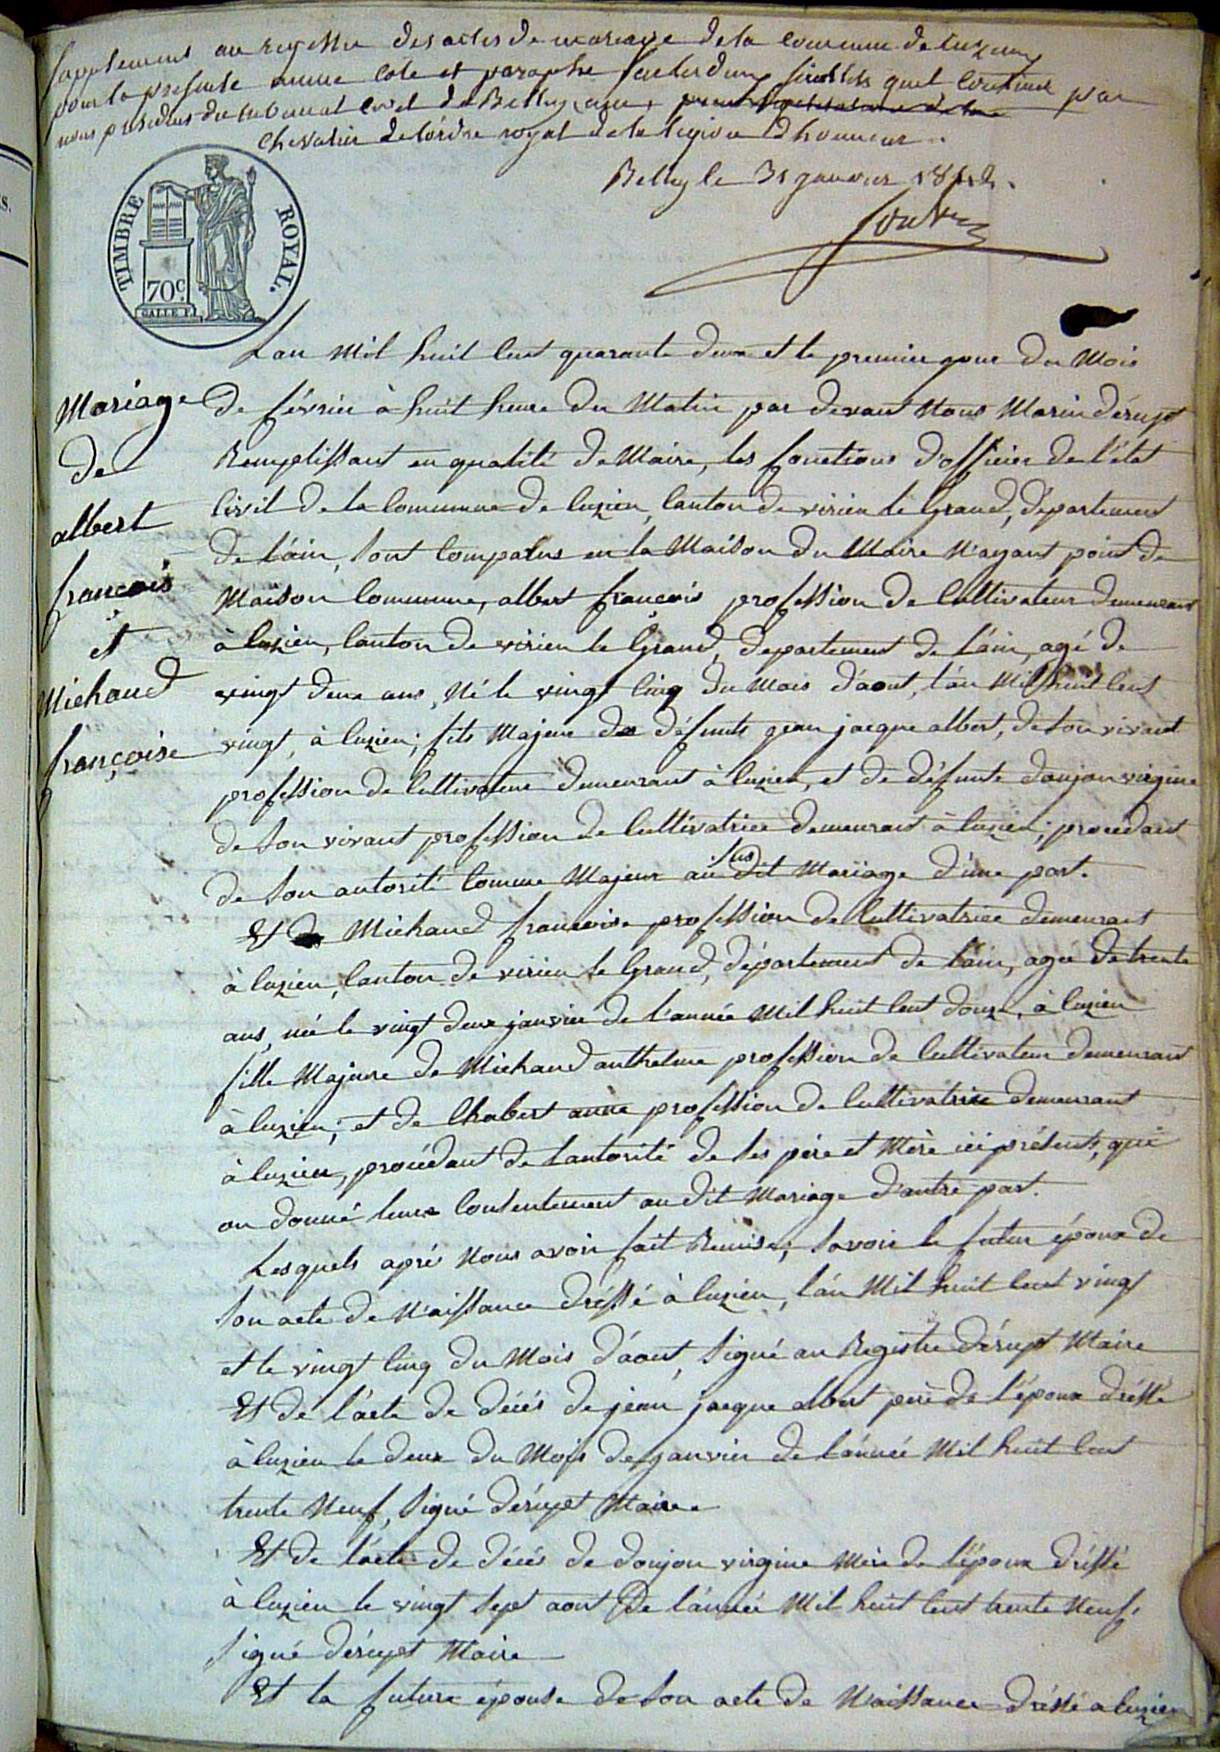 Supplement au registre des actes de mariage de la commune de Cuzieu
pour la presente annee coté et paraphé feuillets qu'il contient par
nous president du tribunal civil de Belley, ain,
chevalier de l'ordre royal de la legion d'honneur.
Belley le 31 janvier 1842.
TIMBRE ROYAL.
70c.
Lan Mil huit Cent quarante deux et le premier jour du Mois
Mariage
de
albert
francois
et
Michaud
françoise
de février à huit heure du Matin par devant Nous Marin dérupt
Remplissant en qualité de Maire, les fonctions d'officier de l'état
Civil de la Commune de Cuzieu, Canton de virieu le Grand, département
de l'ain, sont Comparus en la Maison du Maire N'ayant point de
Maison Commune, albert françois profession de Cultivateur demeurant
à Cuzieu, Canton de virieu le Grand, departement de l'ain, agé de
vingt deux ans, Né le vingt Cinq du Mois d'aout, l'an Mil huit Cent
vingt, à Cuzieu; fils Majeur de défunts jean jacque albert, de son vivant
profession de Cultivateur demeurant à Cuzieu, et de défunte doujon virgine
de son vivant profession de Cultivatrice demeurant à Cuzieu; procédant
de son autorité Comme Majeur au sus dit Mariage d'une part.
Et Michaud francoise profession de Cultivatrice demeurant
à Cuzieu, Canton de virieu le Grand, département de l'ain, agée de trente
ans, née le vingt deux janvier de l'année Mil huit Cent douze, à Cuzieu
fille Majeure de Michaud anthelme profession de Cultivateur demeurant
à Cuzieu; et de Chabert anne profession de Cultivatrice demeurant
à Cuzieu, procédant de l'autorité de ses père et Mère ici présents, qui
on donné leurs Consentement au dit Mariage d'autre part.
Lesquels apré Nous avoir fait Remise; savoir le futur époux de
son acte de N'aissance dréssé à Cuzieu, l'an Mil huit Cent vingt
et le vingt Cinq du Mois d'aout, signé au Registre dérupt Maire
Et de l'acte de décés de jean jacque albert pere de l'époux dréssé
à Cuzieu le deux du Mois de janvier de l'année Mil huit Cent
trente Neuf, signé dérupt Maire
Et de l'acte de décés de doujon virgine Mère de l'époux dréssé
à Cuzieu le vingt sept aout de l'année Mil huit Cent trente Neuf.
signé dérupt Maire
Et la future épouse de son acte de Naissance dréssé a Cuzieu